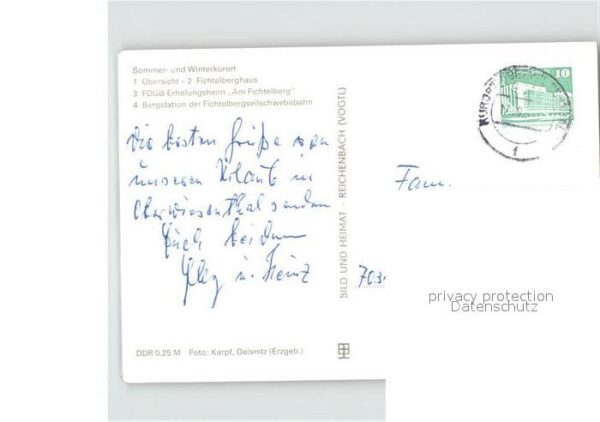 Sommer- und Winterkurort
1 Übersicht – 2 Fichtelberghaus
3 FDGB-Erholungsheim „Am Fichtelberg"
4 Bergstation der Fichtelbergseilschwebebahn
Die besten Grüße von
unserem Urlaub in
Oberwiesenthal senden
Euch beiden
u. Heinz
DDR 0,25 M Foto: Karpf, Oelsnitz (Erzgeb.)
BILD UND HEIMAT · REICHENBACH (VOGTL)
10
KURORT
Fam.
703
privacy protection
Datenschutz